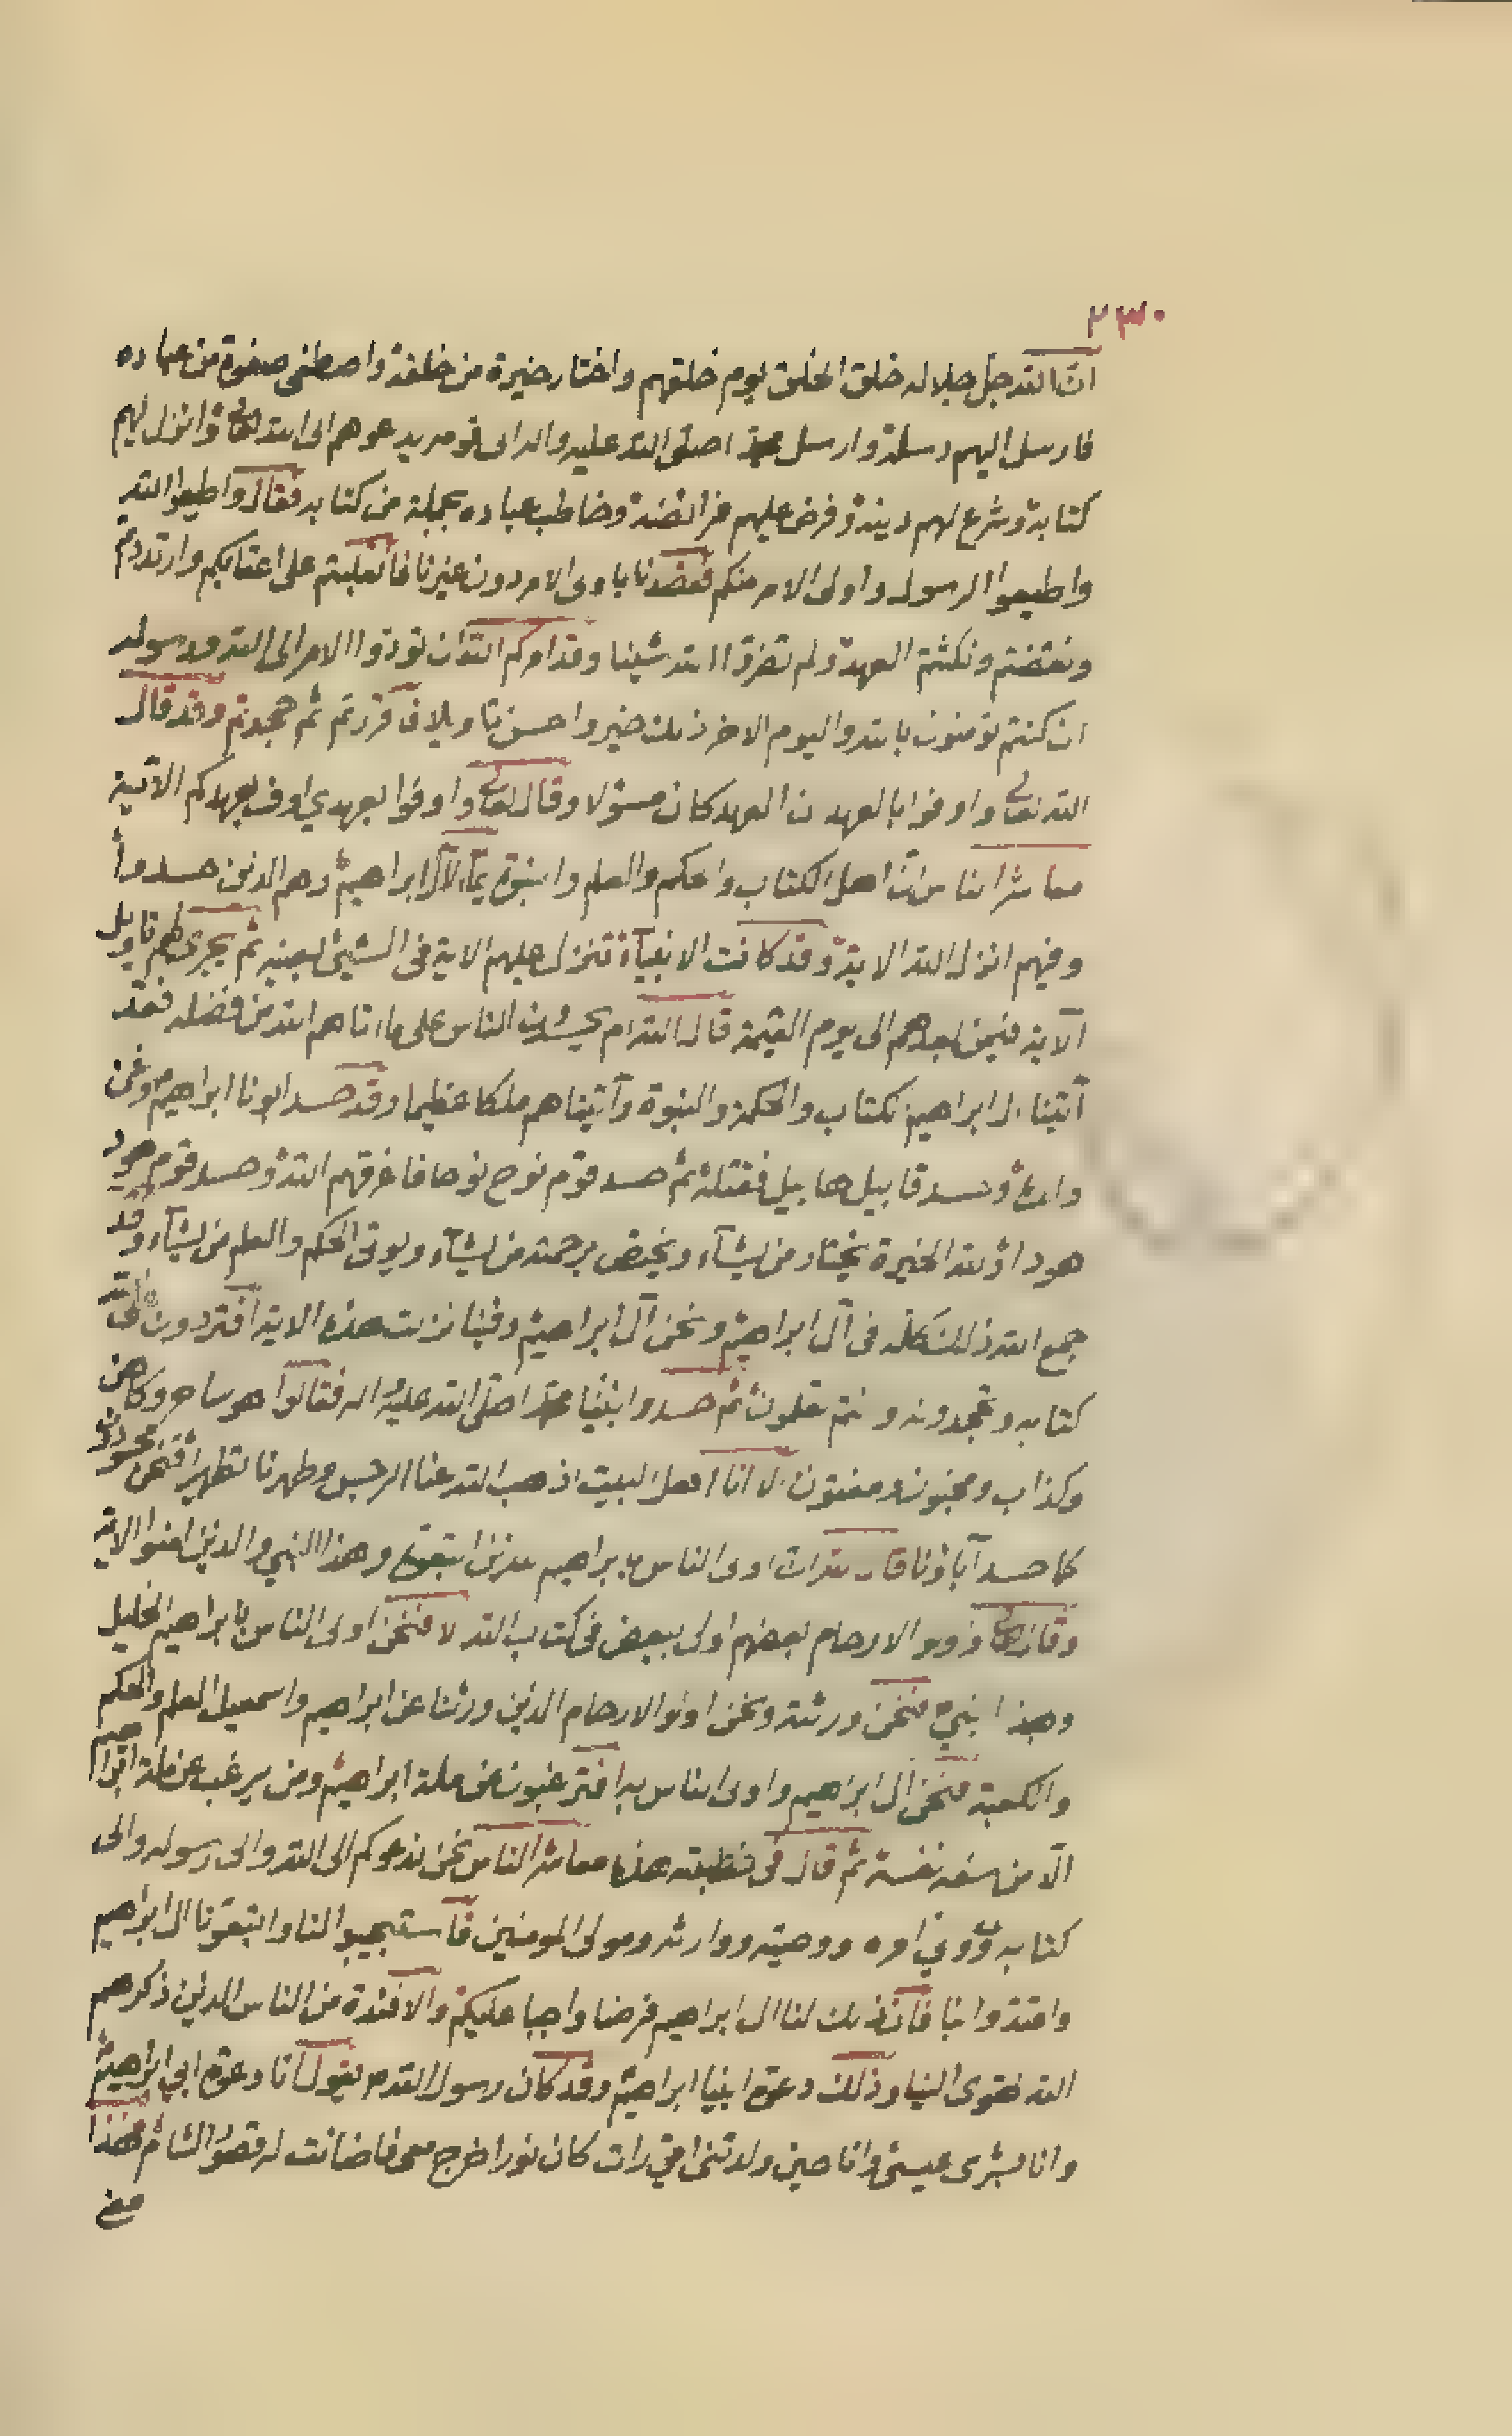 ٢٣٠
ان الله جل جلاله خلق الخلق يوم خلقهم واختار خيرة من خلقه واصطفى صفوة من عباده
فارسل اليهم رسله وارسل محمدا صلى الله عليه واله الى قومه يدعوهم الى الله تعالى وانزل اليهم
كتابه وشرع لهم دينه وفرض عليهم فرائضه وخاطب عباده بجملة من كتابه فقال واطيعوا الله
واطيعوا الرسول واولى الامر منكم فقصدنا باولى الامر دون غيرنا فانقلبتم على اعقابكم وارتددتم
ونقضتم ونكثتم العهد ولم تضروا الله شيئا وقد امركم الله ان تؤدوا الامر الى الله ورسوله
ان كنتم تؤمنون بالله واليوم الاخر ذلك خير واحسن تاويلا فاقررتم ثم جحدتم وقد قال
الله تعالى واوفوا بالعهد ان العهد كان مسؤلا وقال تعالى واوفوا بعهدي اوف بعهدكم الآية
معاشر الناس ان اهل الكتاب والحكم والعلم والنبوة آل ابراهيم وهم الذين حسدوا
وفيهم انزل الله الاية وقد كانت الانبياء تنزل عليهم الاية فى الشيئ بعينه ثم يجرى لهم تاويل
الآية فيمن بعدهم الى يوم القيمة قال الله ام يحسدون الناس على ما اتاهم الله من فضله فقد
آتينا ال ابراهيم الكتاب والحكمة والنبوة وآتيناهم ملكا عظيما وقد حسد ابونا ابراهيم ونحن
وارثوه وحسد قابيل هابيل فقتله ثم حسد قوم نوح نوحا فاغرقهم الله وحسد قوم هود
هودا ولله الخيرة يختار من يشآء ويختص برحمته من يشآء ويوتى الحكم والعلم من يشآء وقد
جمع الله ذلك كله فى آل ابراهيم ونحن آل ابراهيم وفينا نزلت هذه الاية افتردون الى الله
كتابه وتجحدونه وانتم تعلمون ثم حسدوا نبينا محمدا صلى الله عليه واله فقالوا هو ساحر وكاهن
وكذاب ومجنون ومفتون الا انا اهل البيت اذهب الله عنا الرجس وطهرنا تطهيرا فنحن محسودون
كما حسد آباؤنا قال الله ان اولى الناس بابراهيم للذين اتبعوه وهذا النبي والذين امنوا الاية
وقال تعالى واولو الارحام بعضهم اولى ببعض فى كتاب الله الا فنحن اولى الناس بابراهيم الخليل
وهذا النبي فنحن ورثته ونحن اولو الارحام الذين ورثنا عن ابراهيم واسمعيل العلم والحكم
والكعبة فنحن آل ابراهيم واولى الناس به افترغبون عن ملة ابراهيم ومن يرغب عن ملة ابراهيم
الا من سفه نفسه ثم قال فى خطبته هذه معاشر الناس نحن ندعوكم الى الله والى رسوله والى
كتابه وولي امره ووصيه ووارثه ومولى المومنين فاستجيبوا لنا واتبعونا ال ابراهيم
واقتدوا بنا فان ذلك لنا ال ابراهيم فرضا واجبا عليكم والافئدة من الناس الذين ذكرهم
الله تهوى الينا وذلك دعوة ابينا ابراهيم وقد كان رسول الله يقول انا دعوة ابي ابراهيم
وانا بشرى عيسى وانا حين ولدتنى امي رات كان نورا خرج معى فاضائت له قصور الشام فهذا
معنى